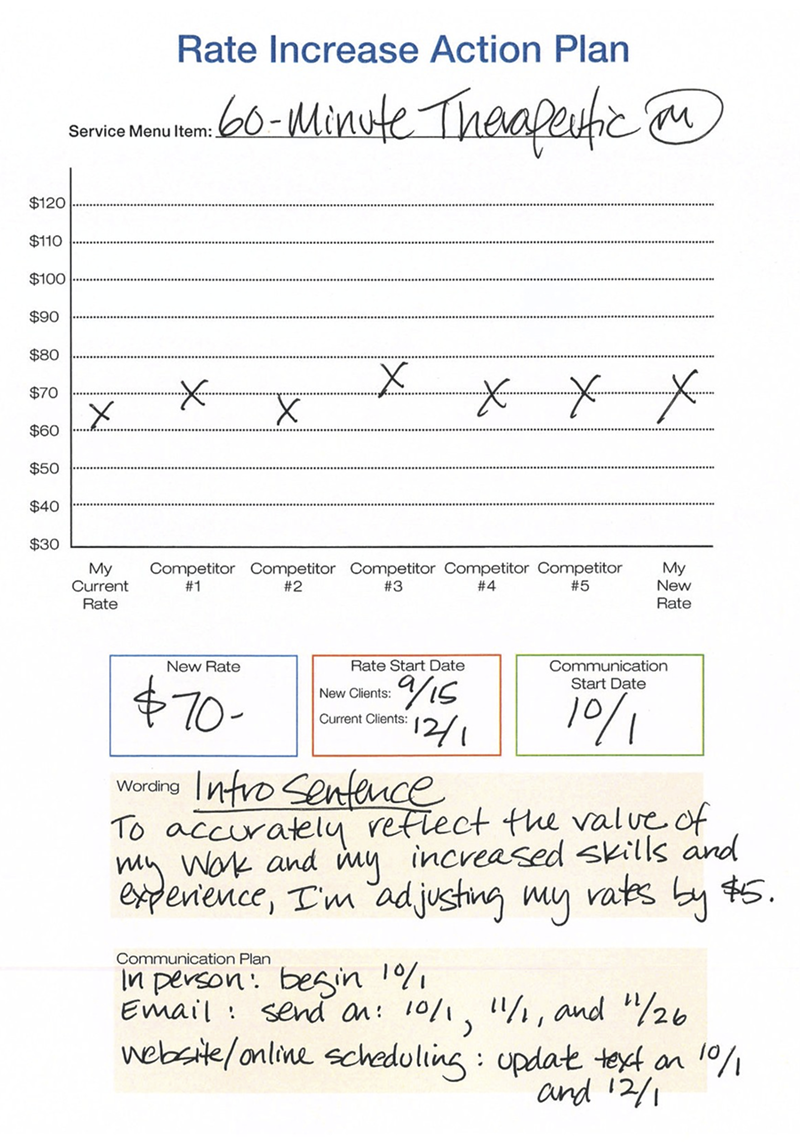 Rate Increase Action Plan
Service Menu Item: 60-Minute Therapeutic M
$120
$110
$100
$90
$80
$70
$60
$50
$40
$30
My Current Rate
Competitor #1
Competitor #2
Competitor #3
Competitor #4
Competitor #5
My New Rate
New Rate
$70-
Rate Start Date
New Clients: 9/15
Current Clients: 12/1
Communication
Start Date
10/1
Wording Intro Sentence
To accurately reflect the value of
my work and my increased skills and
experience, I'm adjusting my rates by $5.
Communication Plan
In person: begin 10/1
Email: send on: 10/1, 11/1, and 11/26
website/online scheduling: update text on 10/1
and 12/1